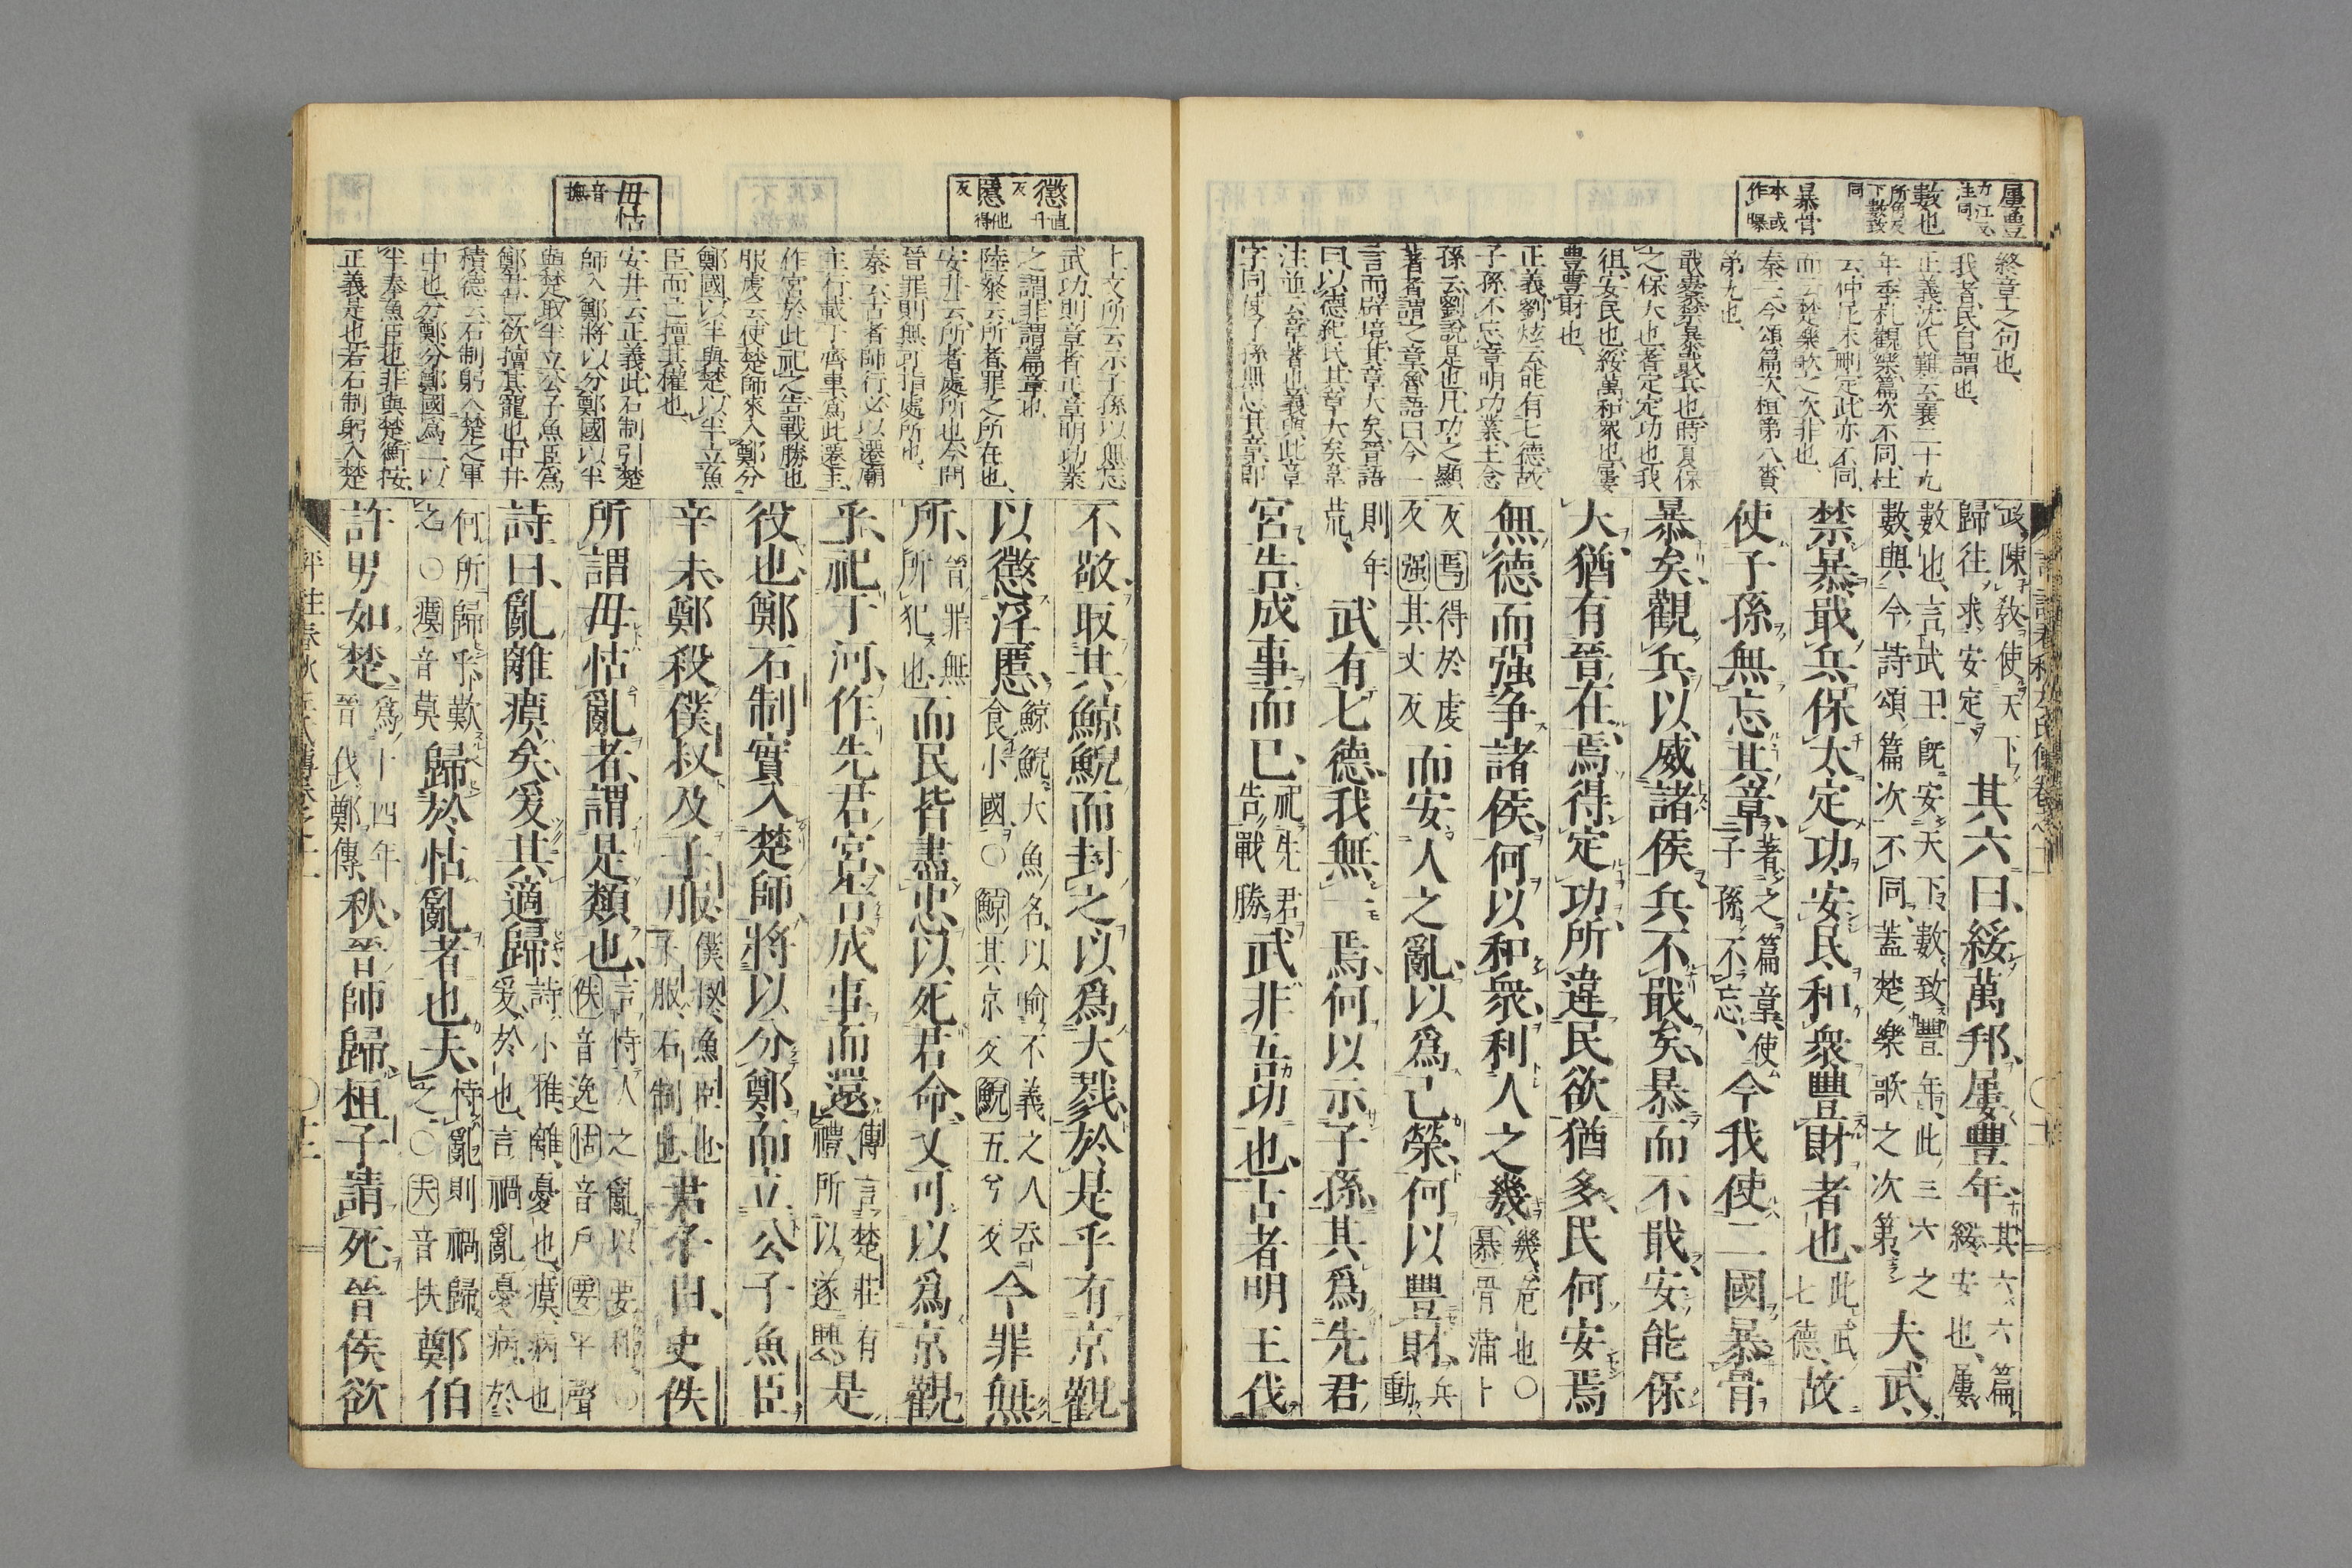 屢豐
力江反
注同
數也
所角反
下數致
同
暴骨
本或
作曝
終章之句也、
我者民自謂也、
正義沈氏難云襄二十九
年季札觀樂篇次不同杜
云仲尼未刪定此亦不同、
而云楚樂歌之次非也、
秦云今頌篇次桓第八賚
第九也、
戢櫜禁暴戢兵也時夏保
之保大也耆定定功也我
徂安民也綏萬和衆也屢
豐豐財也、
正義劉炫云能有七德故
子孫不忘章明功業主念
孫云劉說是也凡功之顯
著者謂之章魯語曰今一
言而辟境其章大矣晉語
曰以德紀民其章大矣韋
注並云章著也義與此章
字同使子孫無忘其章即
政、陳教、使天下
歸往、求安定、
其六曰、綏萬邦、屢豐年、
其六六篇、
綏安也、屢
數也、言武王既安天下、數致豐年、此三六之
數、與今詩頌篇次不同、蓋楚樂歌之次第、
夫武、
禁暴戢兵、保大定功、安民、和衆豐財者也、
此武
七德、
故
使子孫無忘其章、
著之篇章、使
子孫不忘、
今我使二國暴骨
暴矣、觀兵以威諸侯兵不戢矣、暴而不戢、安能保
大、猶有晉在、焉得定功、所違民欲猶多、民何安焉
無德而强爭諸侯、何以和衆、利人之幾、
幾、危也○
暴骨蒲卜
反焉得於虔
反强其丈反
而安人之亂、以爲己榮、何以豐財、
兵
動
則年
荒、
武有七德、我無一焉、何以示子孫、其爲先君
宮、告成事而已、
祀先君
告戰勝
武非吾功也、古者明王伐
懲
直升
反
慝
他得
反
毋怙
音
撫
上文所云示子孫以無忘
武功則章者正章明功業
之謂非謂篇章也、
陸粲云所者罪之所在也、
安井云所者處所也今問
晉罪則無可指處所也、
秦云古者師行必以遷廟
主行載于齊車爲此遷主、
作宮於此祀之告戰勝也
服虔云使楚師來入鄭分
鄭國以半與楚以半立魚
臣而己擅其權也、
安井云正義此石制引楚
師入鄭將以分鄭國以半
與楚取半立公子魚臣爲
鄭君已欲擅其寵也中井
積德云石制躬入楚之軍
中也分鄭分鄭國爲二以
半奉魚臣也非與楚衡按
正義是也若石制躬入楚
不敬、取其鯨鯢而封之、以爲大戮、於是乎有京觀
以懲淫慝、
鯨鯢大魚名、以喻不義之人吞
食小國、○鯨其京反鯢五兮反
今罪無
所、
晉罪無
所犯也、
而民皆盡忠以死君命、又可以爲京觀
乎、祀于河、作先君宮、告成事而還、
傳言楚莊有
禮、所以遂興
是
役也、鄭石制實入楚師、將以分鄭、而立公子魚臣、
辛未、鄭殺僕叔及子服、
僕叔、魚臣也
子服、石制也
君子曰、史佚
所謂毋怙亂者、謂是類也、
言恃人之亂以要利、○
佚音逸怙音戶要平聲
詩曰、亂離瘼矣、爰其適歸、
詩小雅、離、憂也、瘼、病也
爰、於也、言禍亂憂病、於
何所歸乎、歎
之○瘼音莫
歸於怙亂者也夫、
恃亂則禍歸
之○夫音扶
鄭伯
許男如楚、
爲十四年
晉伐鄭傳、
秋、晉師歸、桓子請死、晉侯欲